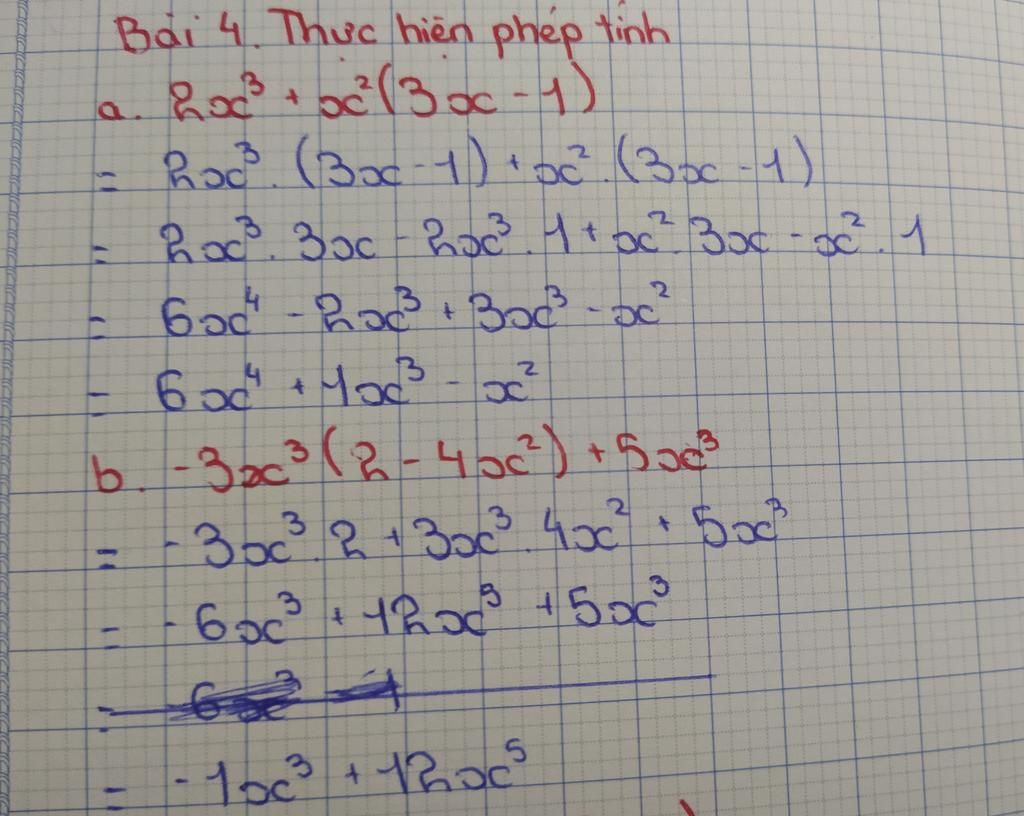 Bài 4. Thực hiện phép tính
a. 2x³ + x²(3x - 1)
= 2x³. (3x - 1) + x². (3x - 1)
= 2x³. 3x - 2x³. 1 + x². 3x - x². 1
= 6x⁴ - 2x³ + 3x³ - x²
= 6x⁴ + 1x³ - x²
b. -3x³(2 - 4x²) + 5x³
= -3x³. 2 + 3x³. 4x² + 5x³
= -6x³ + 12x⁵ + 5x³
= -1x³ + 12x⁵